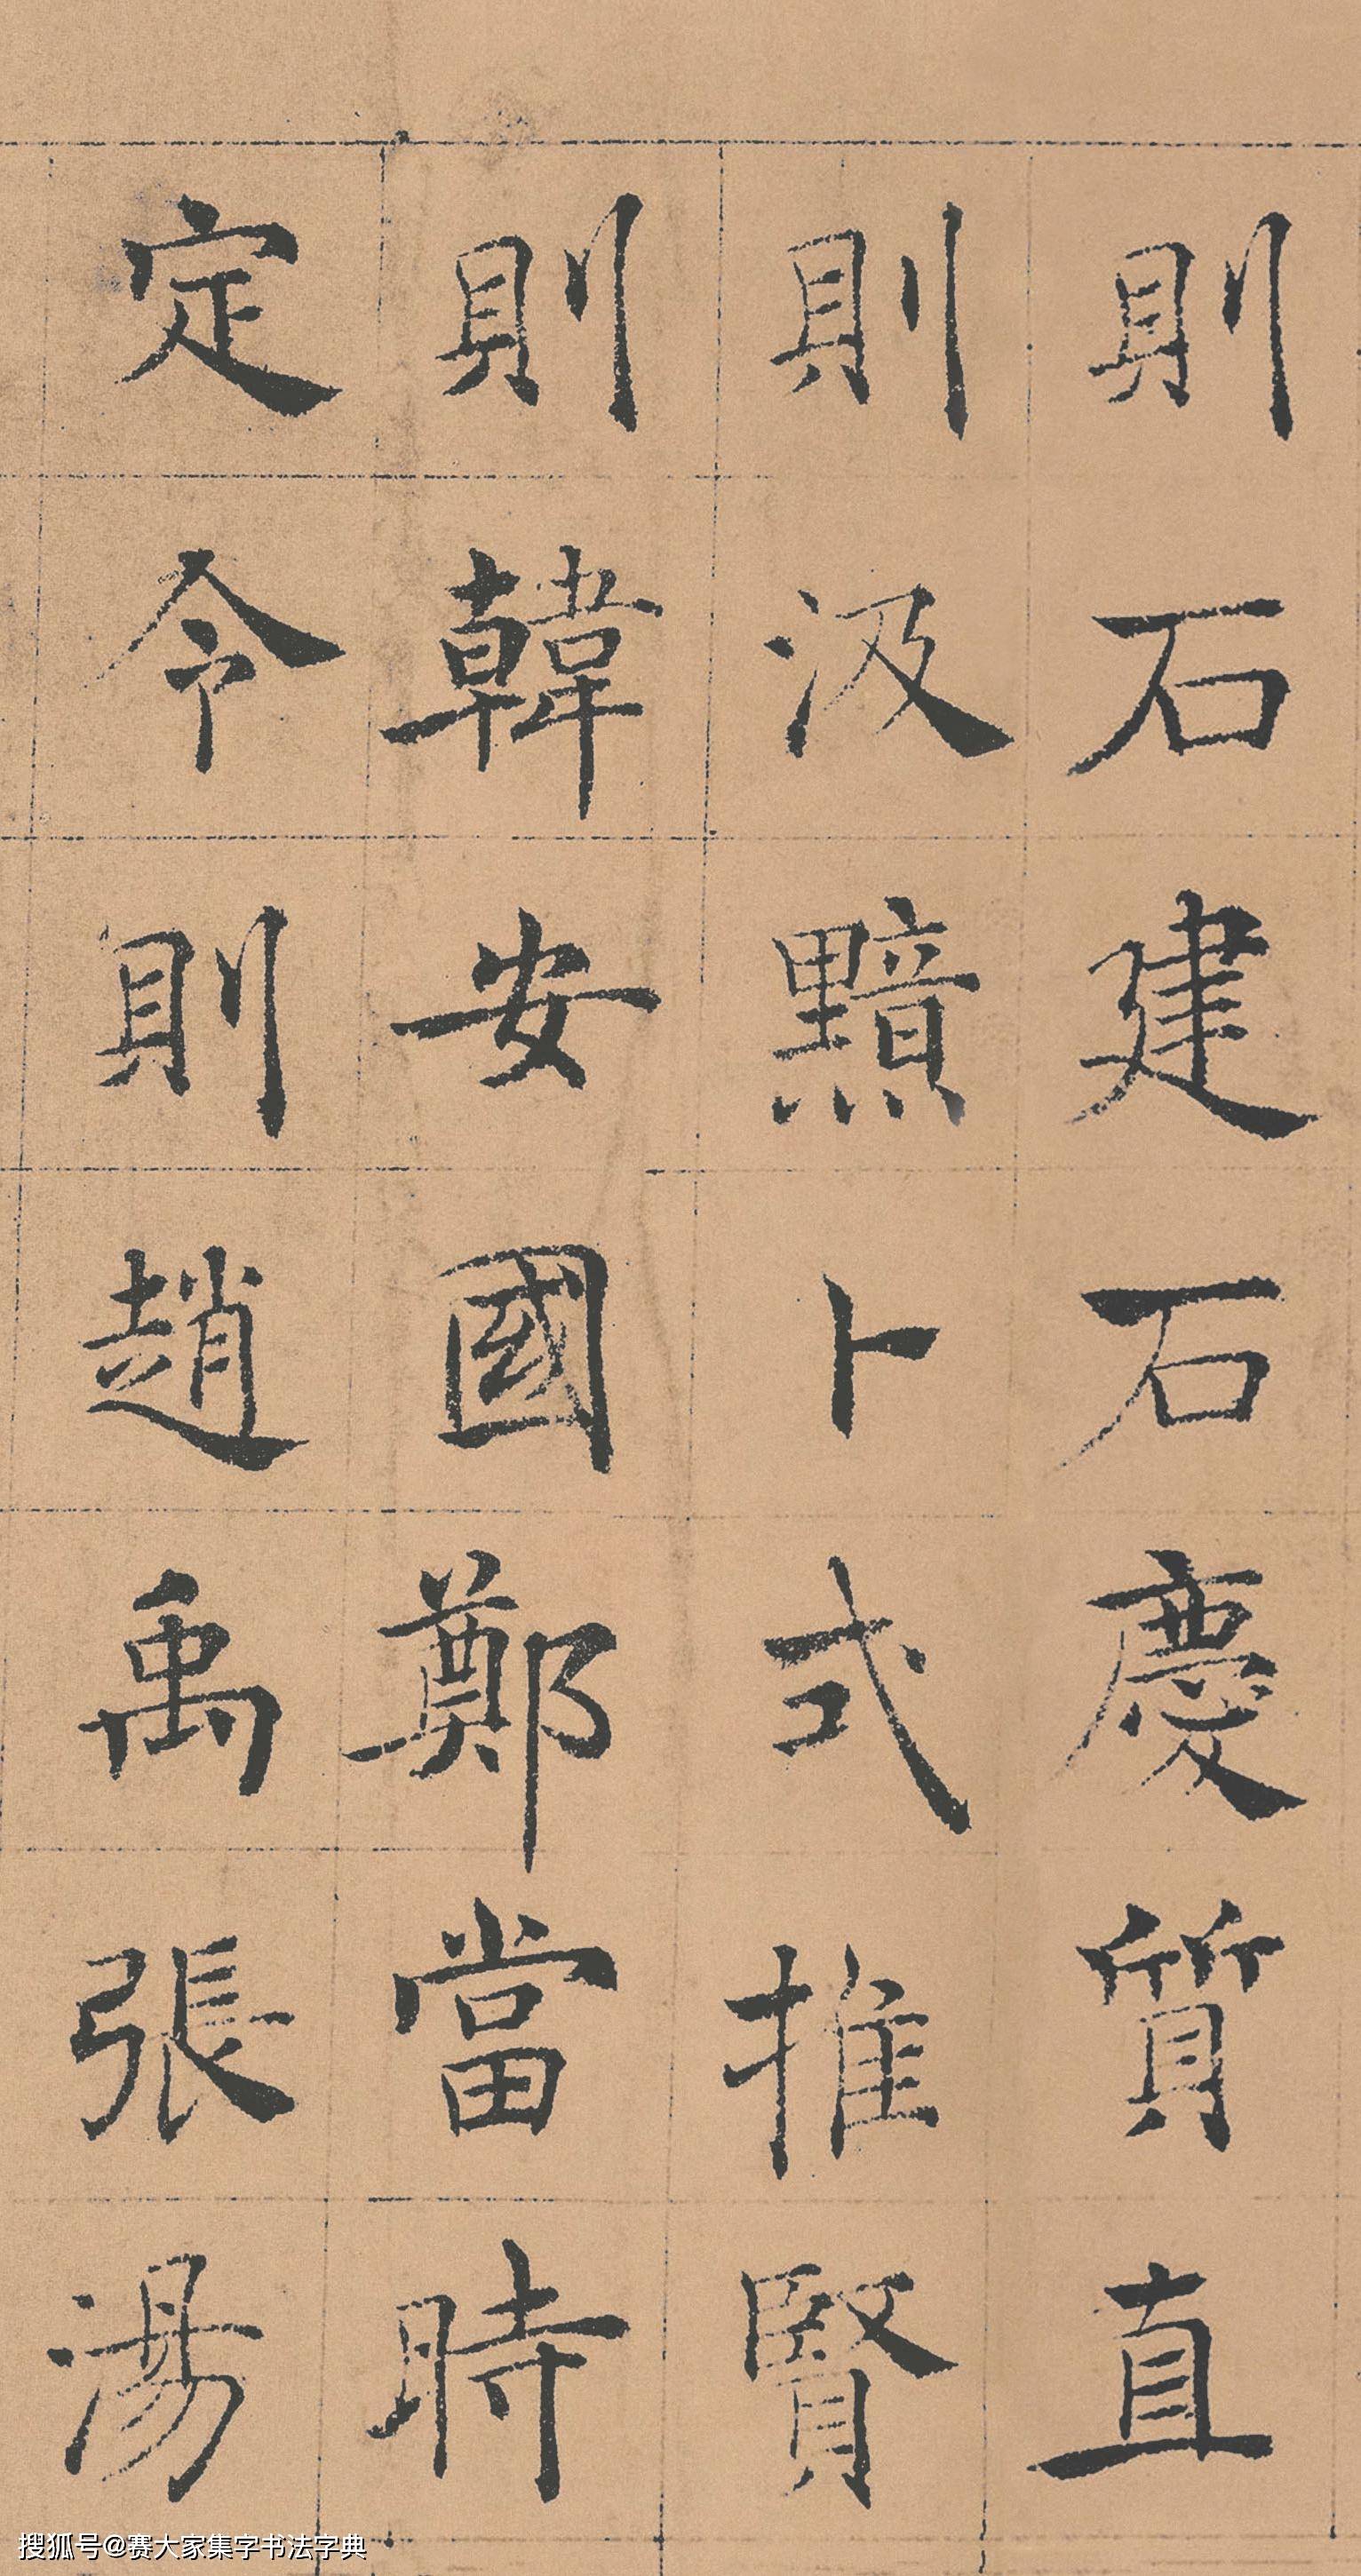 則石建石慶質直
則汲黯卜式推賢
則韓安國鄭當時
定令則趙禹張湯
搜狐号@赛大家集字书法字典